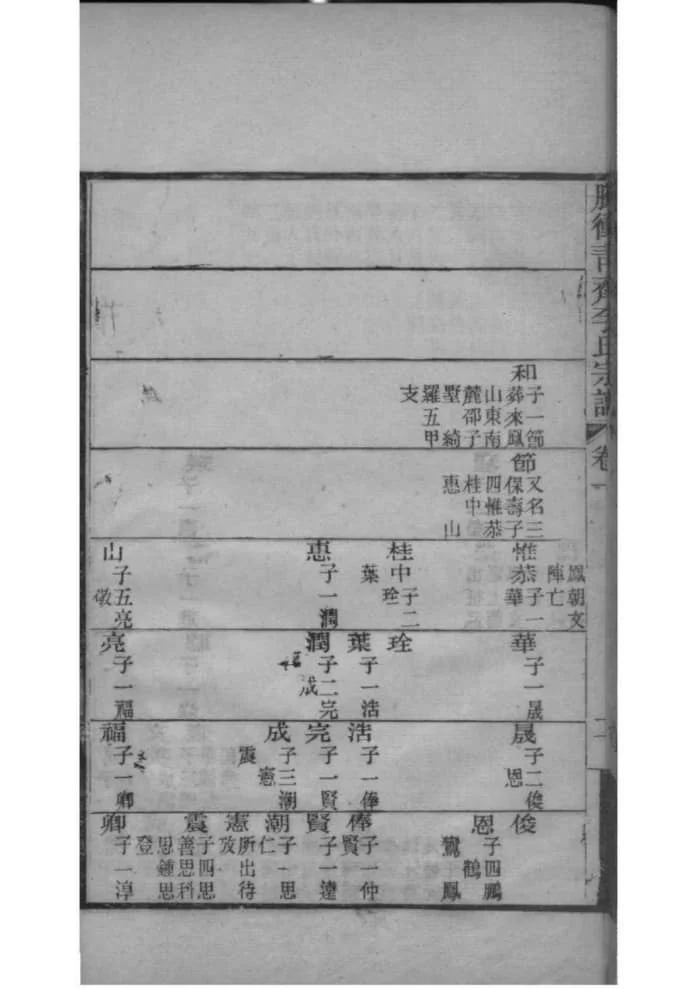 騰衝青齊李氏宗譜
卷一
和
子一節
葬來鳳
山東南
麓邵子
墅綺
羅五甲
支
節
又名三
保壽子
四惟恭
桂中
惠山
鳳朝文
陣亡
惟恭
子一
華
桂中
子二
葉
珄
惠
子一潤
山
子五亮
敬
華
子一晟
珄
葉
子一浩
潤
子二完
成
亮
子一福
晟
子二俊
恩
浩
子一俸
完
子一賢
成
子三潮
憲
震
福
子一卿
俊
恩
子四鵬
鶴
鸞鳳
俸
子一仲
賢
賢
子一達
潮
子一思
仁
憲
所出待
攷
震
子四思
善思科
思鍾思
登
卿
子一淳